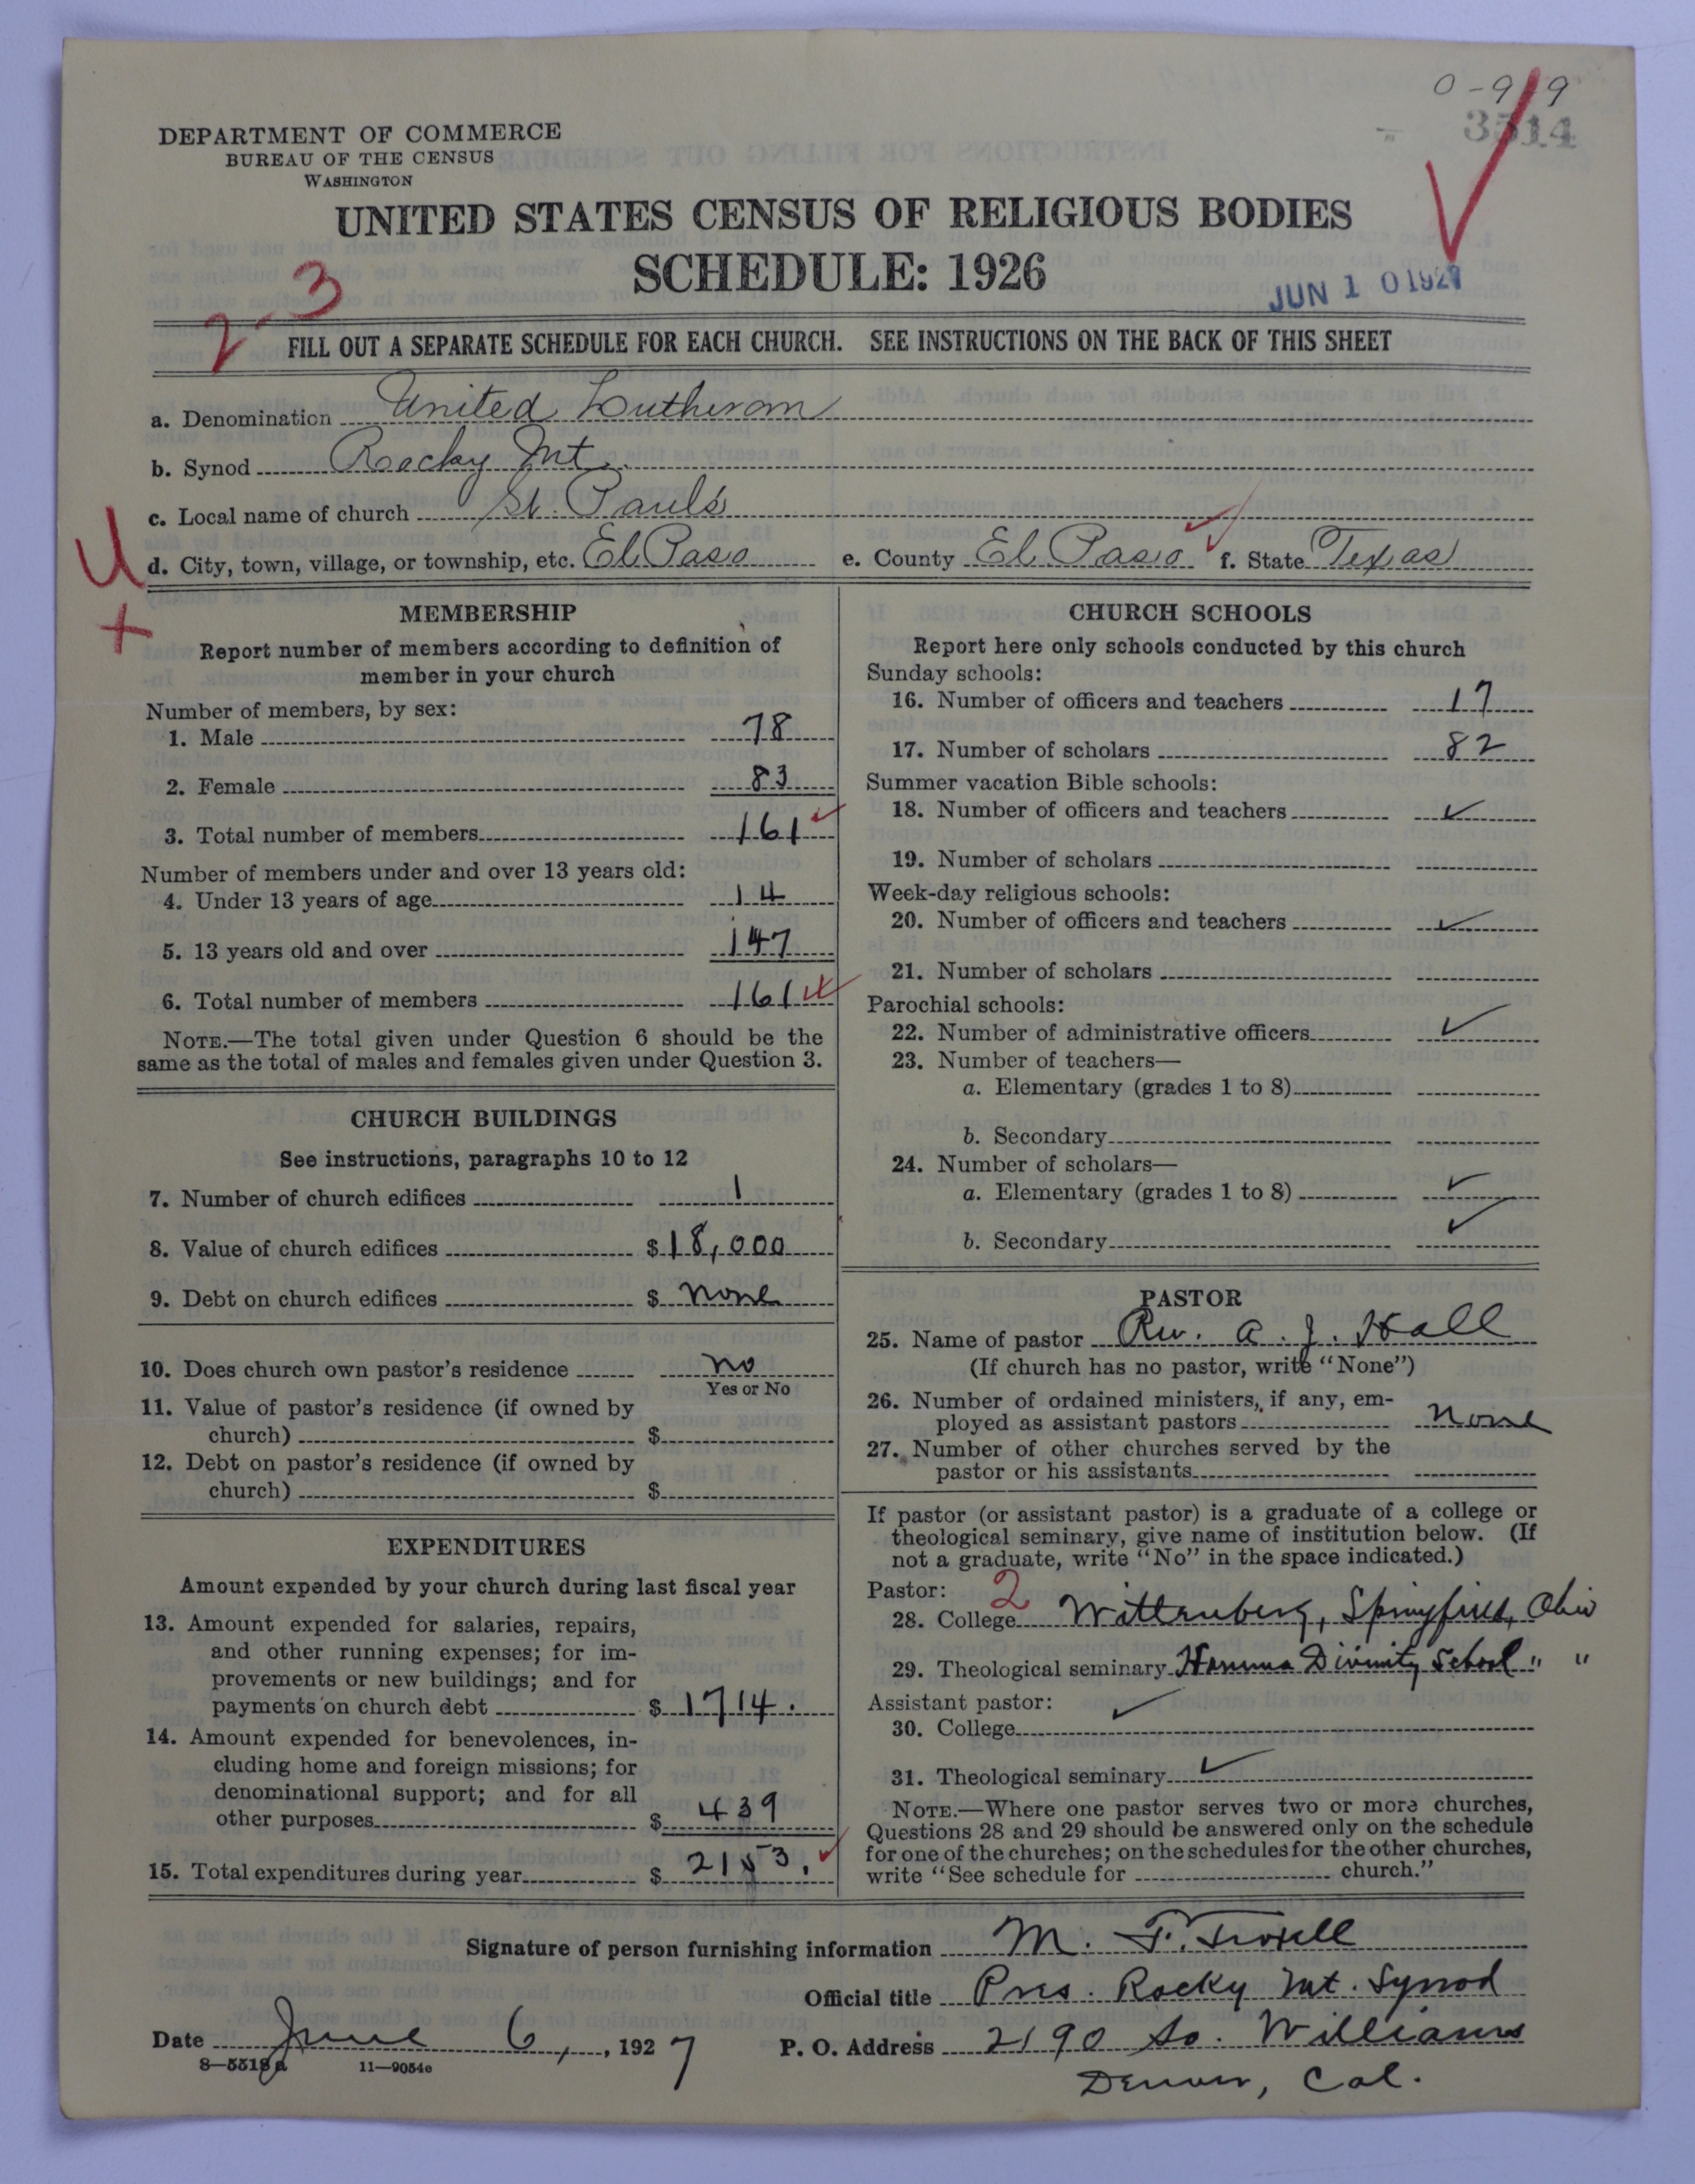 0-919
3514
DEPARTMENT OF COMMERCE
BUREAU OF THE CENSUS
WASHINGTON
UNITED STATES CENSUS OF RELIGIOUS BODIES
SCHEDULE: 1926
JUN 10 1927
2-3
FILL OUT A SEPARATE SCHEDULE FOR EACH CHURCH. SEE INSTRUCTIONS ON THE BACK OF THIS SHEET
a. Denomination United Lutheran
b. Synod Rocky Mt.
c. Local name of church St. Paul's
U
d. City, town, village, or township, etc. El Paso e. County El Paso f. State Texas
MEMBERSHIP
Report number of members according to definition of
member in your church
Number of members, by sex:
1. Male 78
2. Female 83
3. Total number of members 161
Number of members under and over 13 years old:
4. Under 13 years of age 14
5. 13 years old and over 147
6. Total number of members 161
NOTE.—The total given under Question 6 should be the
same as the total of males and females given under Question 3.
CHURCH BUILDINGS
See instructions, paragraphs 10 to 12
7. Number of church edifices 1
8. Value of church edifices $18,000
9. Debt on church edifices $ none
10. Does church own pastor's residence no
Yes or No
11. Value of pastor's residence (if owned by
church) $
12. Debt on pastor's residence (if owned by
church) $
EXPENDITURES
Amount expended by your church during last fiscal year
13. Amount expended for salaries, repairs,
and other running expenses; for im-
provements or new buildings; and for
payments on church debt $ 1714.
14. Amount expended for benevolences, in-
cluding home and foreign missions; for
denominational support; and for all
other purposes $ 439
15. Total expenditures during year $ 2153.
CHURCH SCHOOLS
Report here only schools conducted by this church
Sunday schools:
16. Number of officers and teachers 17
17. Number of scholars 82
Summer vacation Bible schools:
18. Number of officers and teachers ✓
19. Number of scholars
Week-day religious schools:
20. Number of officers and teachers ✓
21. Number of scholars
Parochial schools:
22. Number of administrative officers ✓
23. Number of teachers—
a. Elementary (grades 1 to 8)
b. Secondary
24. Number of scholars—
a. Elementary (grades 1 to 8) ✓
b. Secondary ✓
PASTOR
25. Name of pastor Rev. A. J. Hall
(If church has no pastor, write "None")
26. Number of ordained ministers, if any, em-
ployed as assistant pastors none
27. Number of other churches served by the
pastor or his assistants
If pastor (or assistant pastor) is a graduate of a college or
theological seminary, give name of institution below. (If
not a graduate, write "No" in the space indicated.)
Pastor: 2
28. College Wittenberg, Springfield, Ohio
29. Theological seminary Hamma Divinity School " "
Assistant pastor: ✓
30. College
31. Theological seminary ✓
NOTE.—Where one pastor serves two or more churches,
Questions 28 and 29 should be answered only on the schedule
for one of the churches; on the schedules for the other churches,
write "See schedule for church."
Signature of person furnishing information M. F. Troxell
Official title Pres. Rocky Mt. Synod
Date June 6, 1927 P. O. Address 2190 So. Williams
8—5518a 11—9054c
Denver, Col.